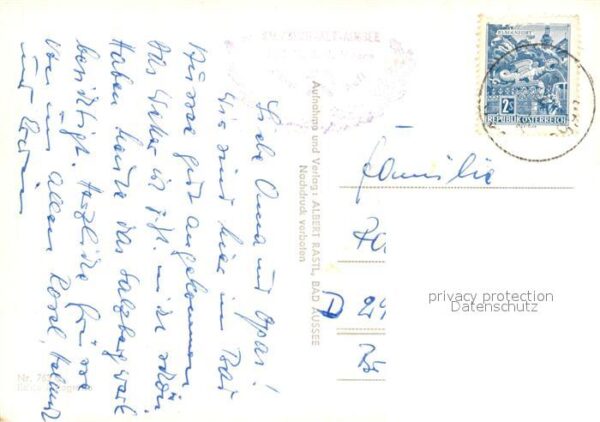 Liebe Oma und Opa!
Wir sind hier in Bad
Aussee gut angekommen
Das Wetter ist z.Zt. nicht schön.
Haben heute das Salzbergwerk
besichtigt. Herzliche Grüsse
von uns allen Rosel, Helmut
und
Aufnahme und Verlag: ALBERT RASTL, BAD AUSSEE
Nachdruck verboten
KLAGENFURT
2S
REPUBLIK ÖSTERREICH
Familie
D 29
privacy protection
Datenschutz
Nr.